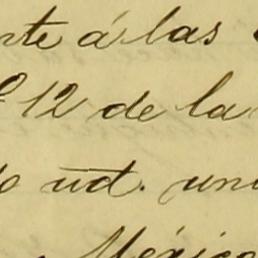 nte á las
12 de la
ud. un
México